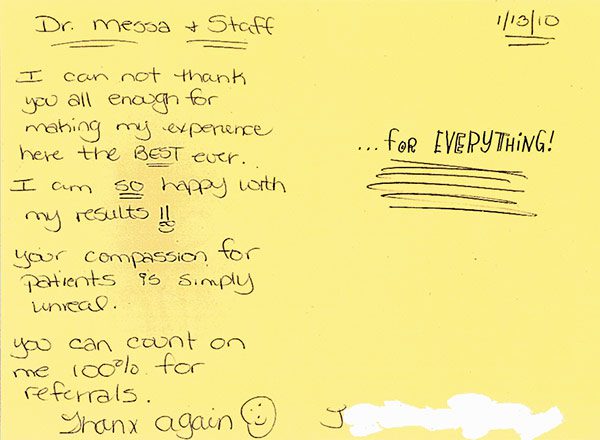 Dr. Messa & Staff
1/13/10
I can not thank
you all enough for
making my experience
here the BEST ever.
I am so happy with
my results!!
your compassion for
patients is simply
unreal.
you can count on
me 100% for
referrals.
Thanx again
...for EVERYTHING!
J